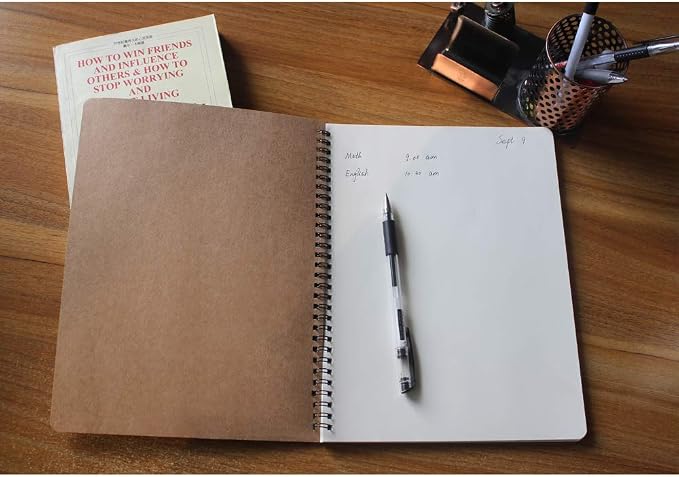 HOW TO WIN FRIENDS
AND INFLUENCE
OTHERS & HOW TO
STOP WORRYING
AND
LIVING
Sept 9
Math 9:00 am
English 10:00 am